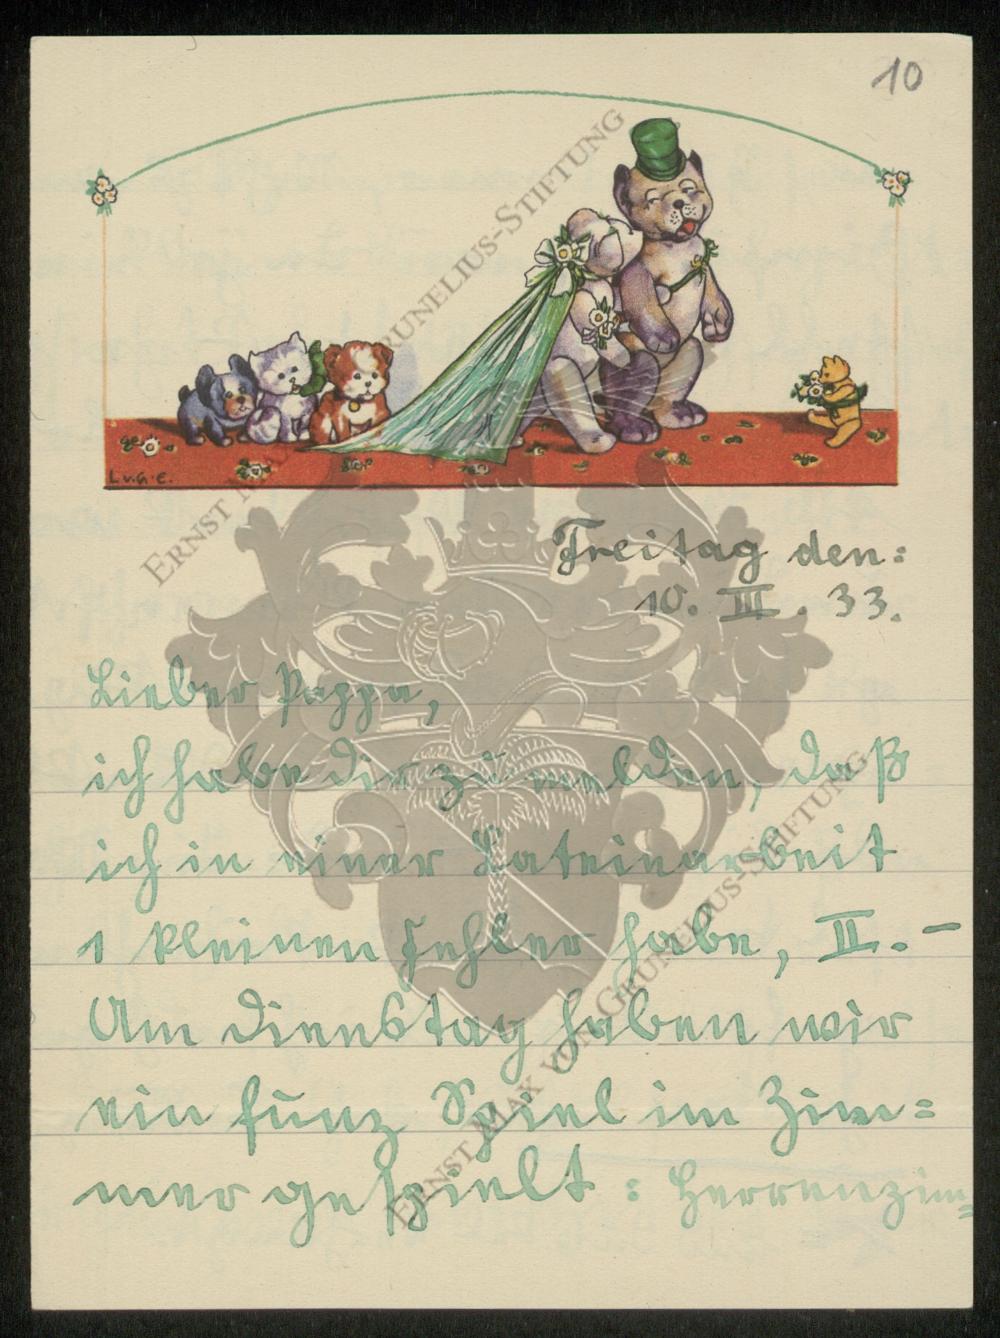 10
L.v.G.C.
Freitag den:
10. III. 33.
Lieber Pappa,
ich habe dir zu melden, daß
ich in einer Lateinarbeit
1 kleinen Fehler habe, II.-
Am Dienstag haben wir
ein Spiel im Zim=
mer gespielt: Herrenzim=
ERNST MAX VON GRUNELIUS-STIFTUNG
ERNST MAX VON GRUNELIUS-STIFTUNG